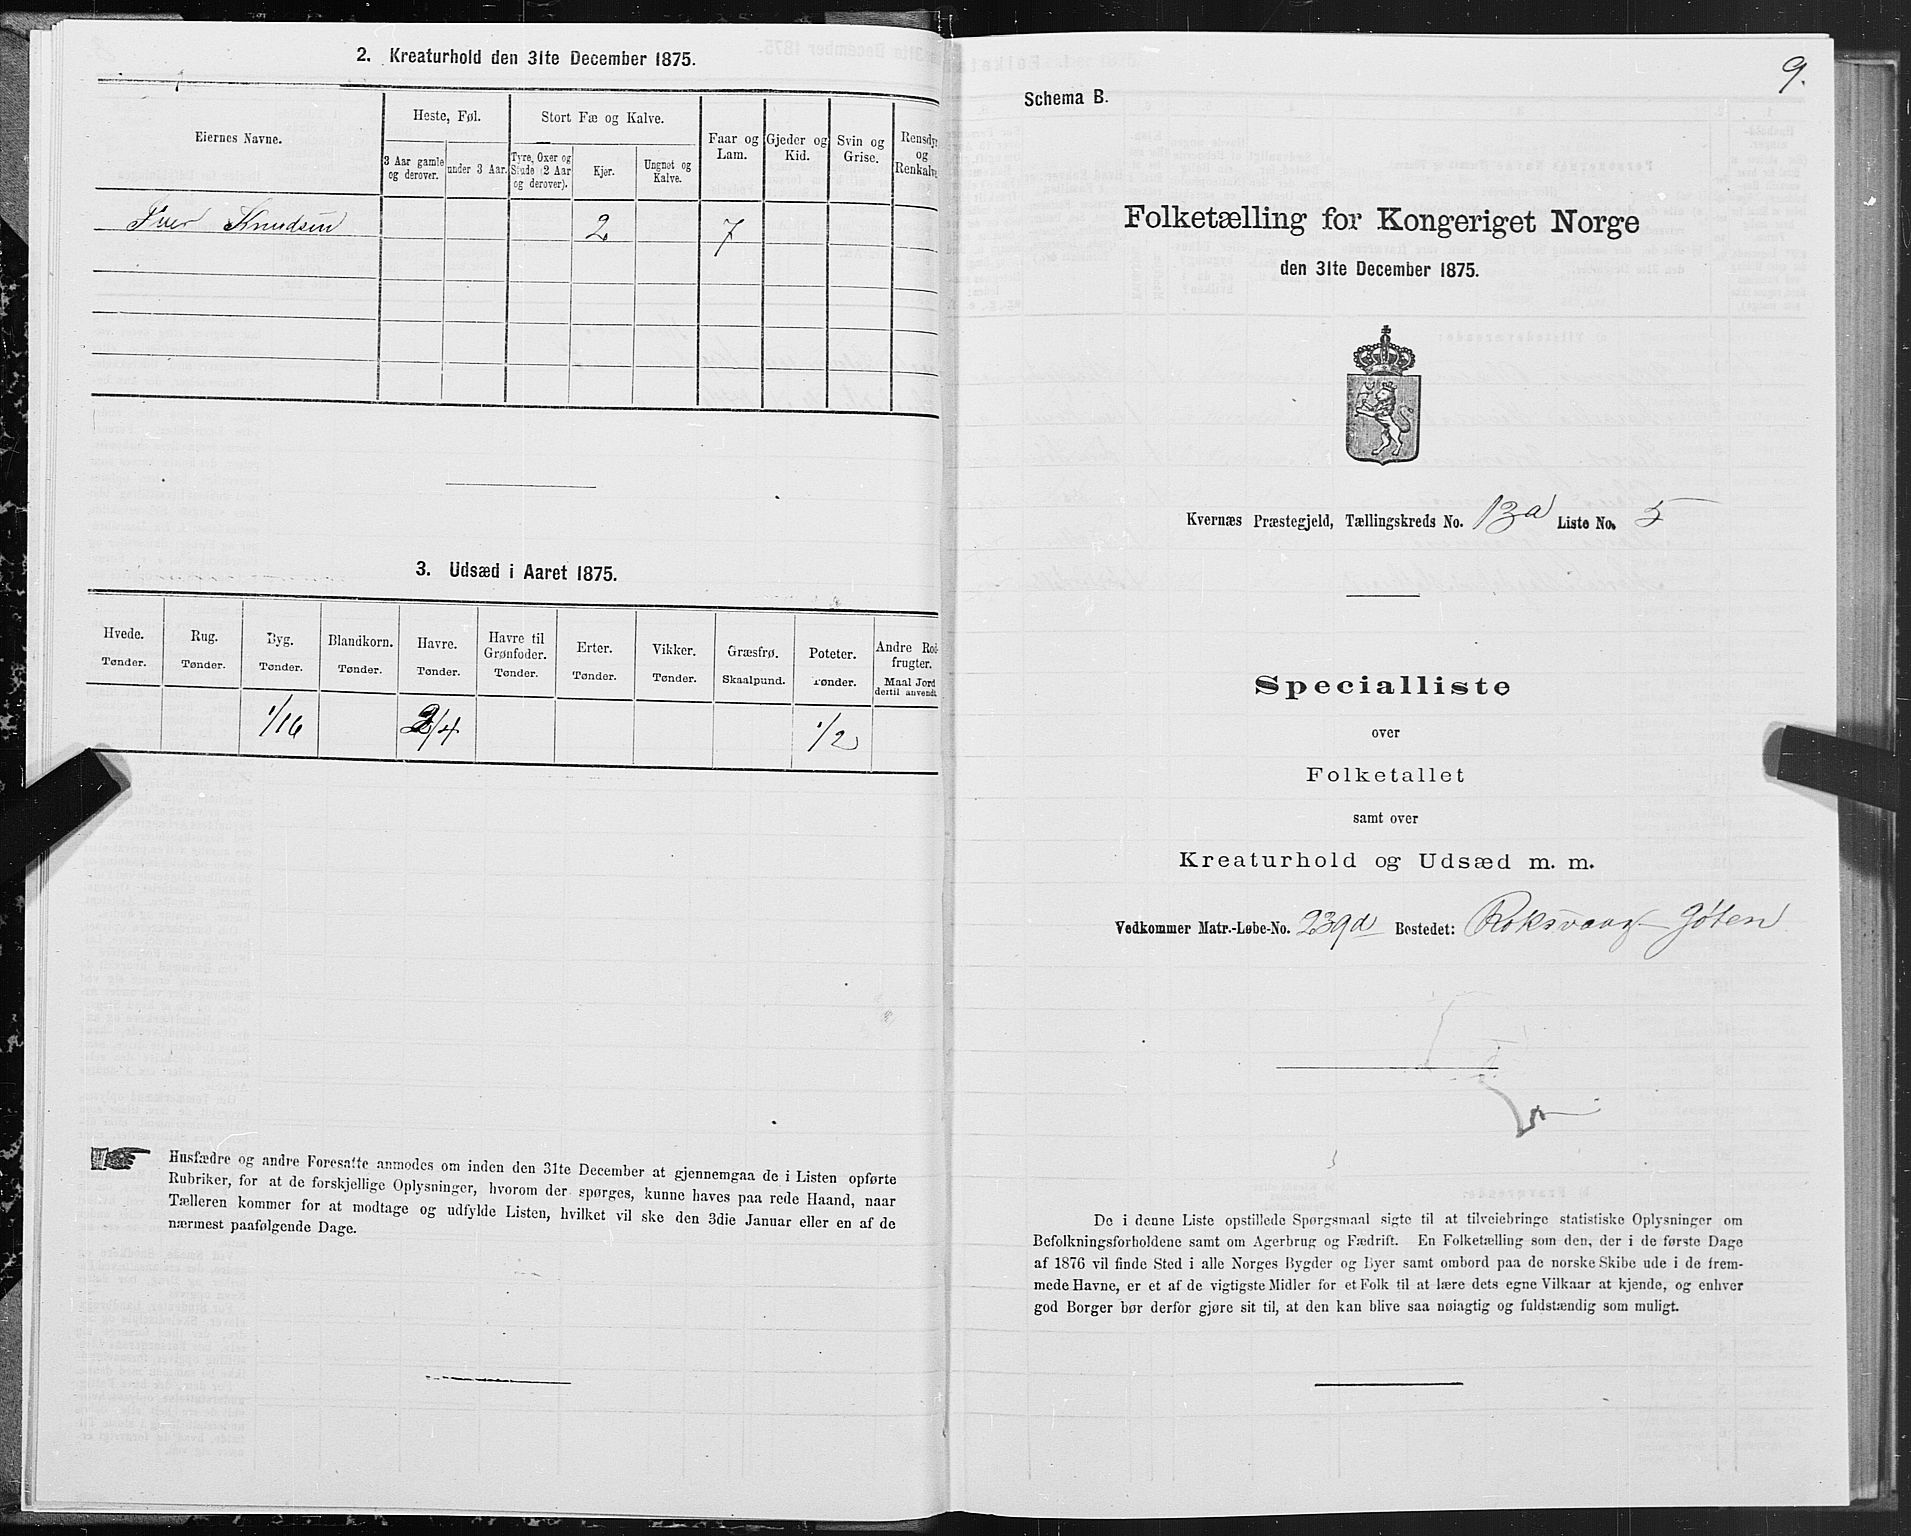 2. Kreaturhold den 31te December 1875.
Eiernes Navne.
Heste, Føl.
3 Aar gamle og derover.
under 3 Aar.
Stort Fæ og Kalve.
Tyre, Oxer og Stude (2 Aar og derover).
Kjer.
Ungnøt og Kalve.
Faar og Lam.
Gjeder og Kid.
Svin og Grise.
Rensdyr og Renkalve.
Iver Knudsen 2 7
3. Udsæd i Aaret 1875.
Hvede. Tønder.
Rug. Tønder.
Byg. Tønder.
Blandkorn. Tønder.
Havre. Tønder.
Havre til Grønfoder. Tønder.
Erter. Tønder.
Vikker. Tønder.
Græsfrø. Skaalpund.
Poteter. Tønder.
Andre Rodfrugter. Maal Jord dertil anvendt.
1/16 3/4 1/2
Husfædre og andre Foresatte anmodes om inden den 31te December at gjennemgaa de i Listen opførte
Rubriker, for at de forskjellige Oplysninger, hvorom der spørges, kunne haves paa rede Haand, naar
Tælleren kommer for at modtage og udfylde Listen, hvilket vil ske den 3die Januar eller en af de
nærmest paafølgende Dage.
9.
Schema B.
Folketælling for Kongeriget Norge
den 31te December 1875.
Kvernæs Præstegjeld, Tællingskreds No. 13a Liste No. 5
Specialliste
over
Folketallet
samt over
Kreaturhold og Udsæd m. m.
Vedkommer Matr.-Løbe-No. 239d Bostedet: Roksvaag Jøten
De i denne Liste opstillede Spørgsmaal sigte til at tilveiebringe statistiske Oplysninger om
Befolkningsforholdene samt om Agerbrug og Fædrift. En Folketælling som den, der i de første Dage
af 1876 vil finde Sted i alle Norges Bygder og Byer samt ombord paa de norske Skibe ude i de frem-
mede Havne, er et af de vigtigste Midler for et Folk til at lære dets egne Vilkaar at kjende, og enhver
god Borger bør derfor gjøre sit til, at den kan blive saa nøiagtig og fuldstændig som muligt.